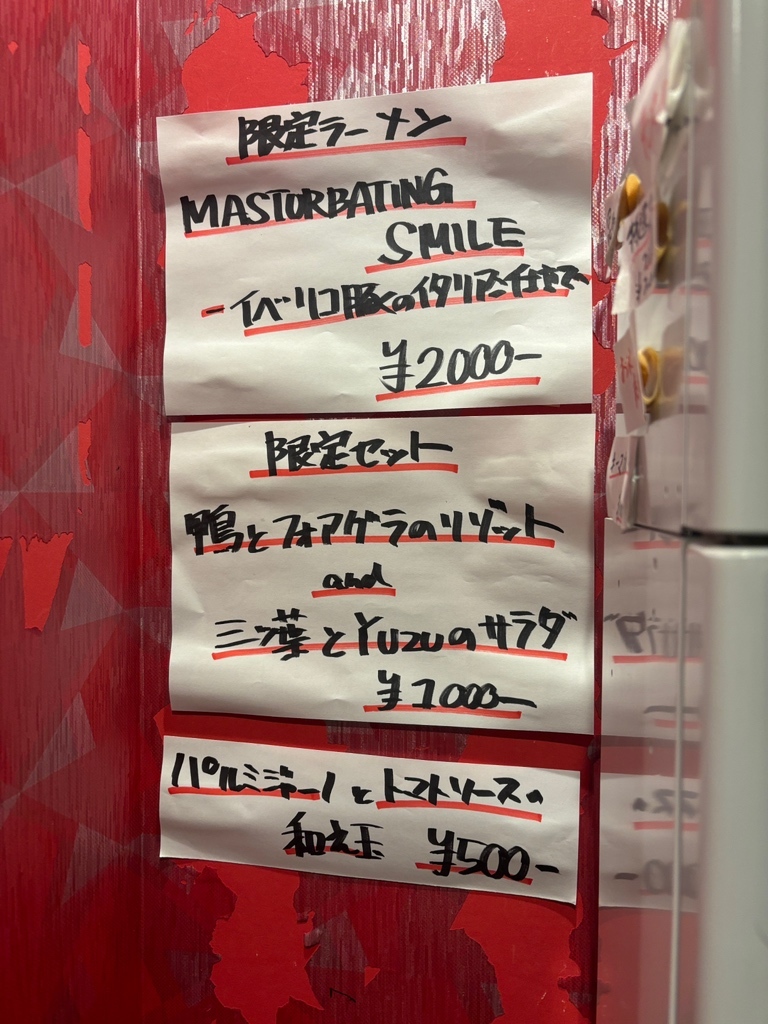 限定ラーメン
MASTURBATING
SMILE
-イベリコ豚のイタリアン仕立て
¥2000-
限定セット
鴨とフォアグラのリゾット
and
三ツ葉とYUZUのサラダ
¥1000-
パルミジャーノとトマトソースの
和え玉 ¥500-